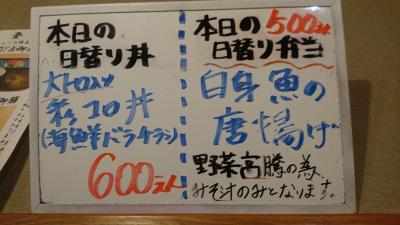 本日の
日替り丼
大トロ入り
彩り丼
(海鮮バラチラシ)
600えん
本日の500えん
日替り弁当
白身魚の
唐揚げ
野菜高騰の為、
みそ汁のみとなります。